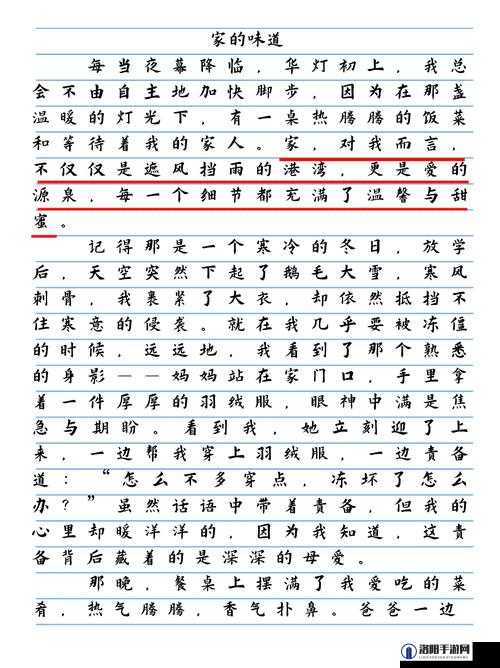 家的味道
每当夜幕降临，华灯初上，我总
会不由自主地加快脚步，因为在那盏
温暖的灯光下，有一桌热腾腾的饭菜
和等待着我的家人。家，对我而言，
不仅仅是遮风挡雨的港湾，更是爱的
源泉，每一个细节都充满了温馨与甜
蜜。
记得那是一个寒冷的冬日，放学
后，天空突然下起了鹅毛大雪，寒风
刺骨，我裹紧了大衣，却依然抵挡不
住寒意的侵袭。就在我几乎要被冻僵
的时候，远远地，我看到了那个熟悉
的身影——妈妈站在家门口，手里拿
着一件厚厚的羽绒服，眼神中满是焦
急与期盼。看到我，她立刻迎了上
来，一边帮我穿上羽绒服，一边责备
道：“怎么不多穿点，冻坏了怎么
办？”虽然话语中带着责备，但我的
心里却暖洋洋的，因为我知道，这责
备背后藏着的是深深的母爱。
那晚，餐桌上摆满了我爱吃的菜
肴，热气腾腾，香气扑鼻。爸爸一边
洛阳手游网